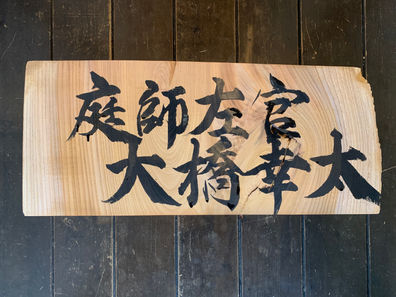 庭師左官
大橋幸太